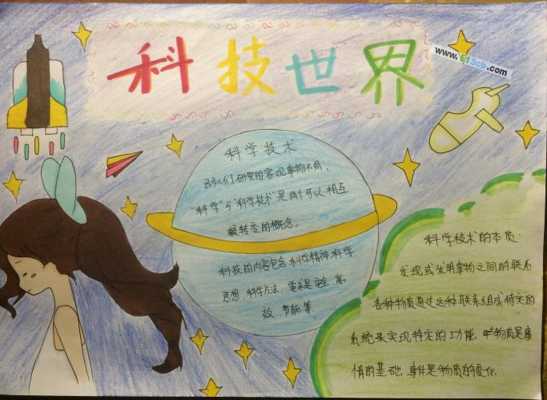 科技世界
www. .com
科学技术
研究的客观事物不同,
"科学"与"科学技术"是两个可以相互
转变的概念。
科技的内容包含 科学精神 科学
思想 科学方法
效、节能等
科学技术的本质:
发现或发明事物之间的联系
各种物质通过这种联系组成特定的
系统来实现特定的功能.
的基础 事件是物质的变化